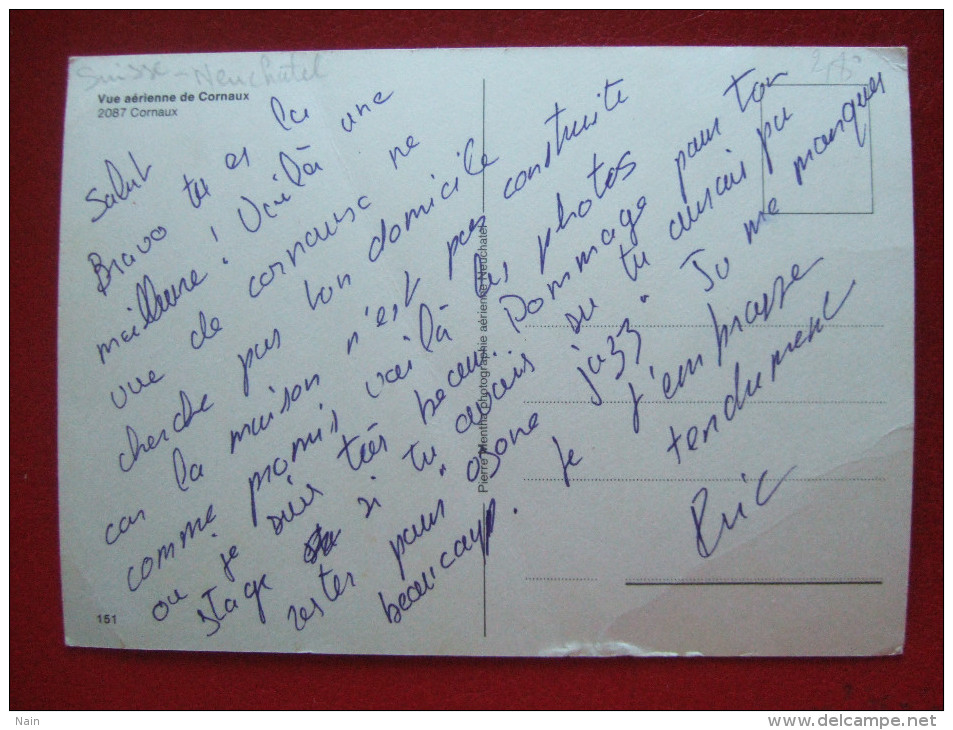 Suisse - Neuchatel
Vue aérienne de Cornaux
2087 Cornaux
Salut
Bravo tu es la
meilleure ! Voilà une
vue de cornaux ne
cherche pas ton domicile
car la maison n'est pas construite
comme promis voilà les photos
ou je suis très beau. Dommage pour ton
stage si tu avais su tu aurais pu
rester pour "ozone jazz" Tu me manques
beaucoup. Je t'embrasse
tendrement
Eric
Pierre Mentha photographie aérienne Neuchatel
151
Nain
www.delcampe.net